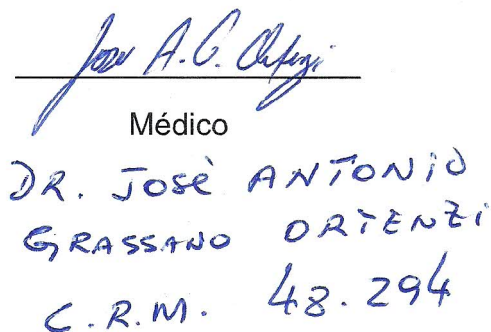 José A. G. Ortenzi
Médico
DR. JOSÈ ANTONIO
GRASSANO ORTENZI
C.R.M. 48.294